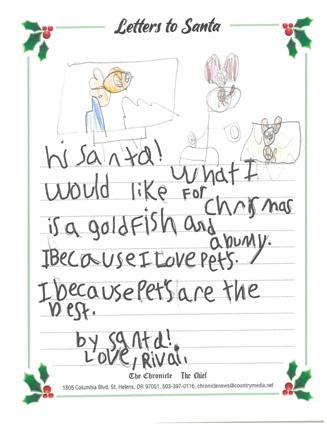 Letters to Santa
hi santa!
What I
would like For
Chrismas
is a goldFish and
a buny.
IBecauseILovePets.
I becausePets are the
best.
by santa!
Love, Rival.
The Chronicle The Chief
1805 Columbia Blvd, St. Helens, OR 97051, 503-397-0116, chroniclenews@countrymedia.net